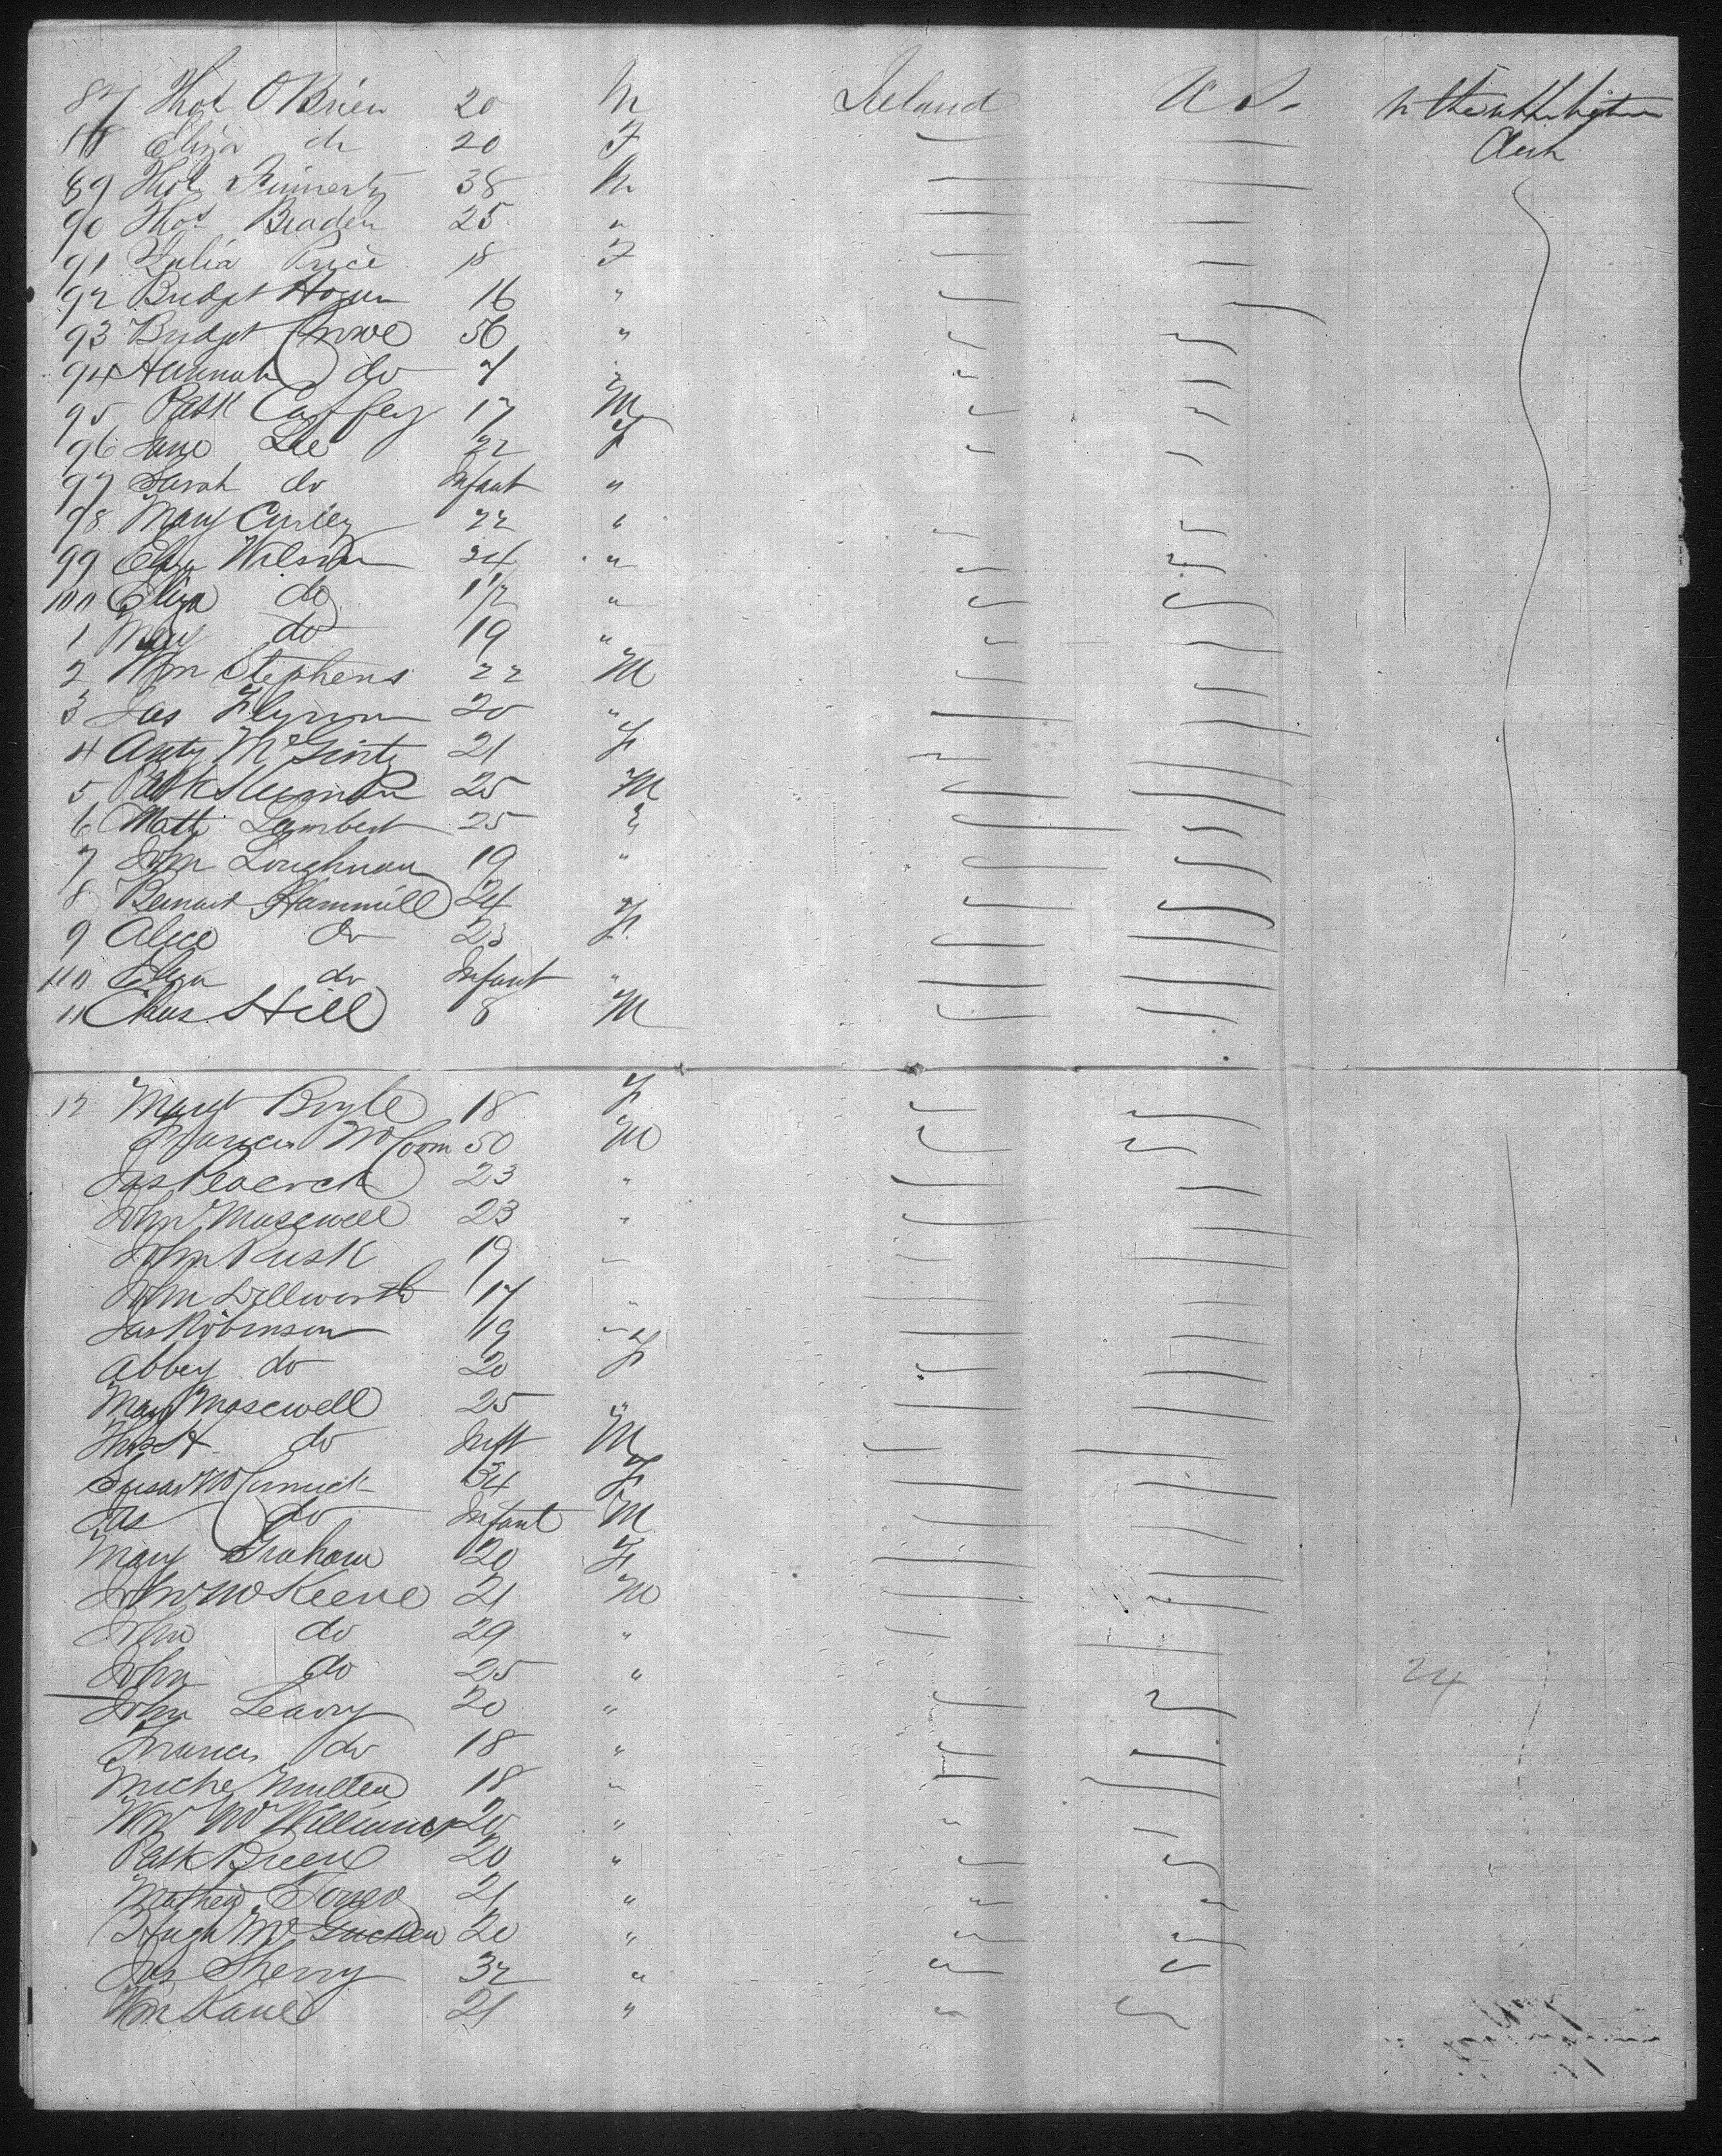 87 Thos O'Brien 20 M Ireland U S. In the
88 Eliza do 20 F Deck
89 Thos Finnerty 38 M
90 Thos Braden 25 "
91 Julia Price 18 F
92 Bridget Hogan 16 "
93 Bridget Crowe 50 "
94 Hannah do 7 "
95 Patk Caffey 17 M
96 Jane Lee 22 F
97 Sarah do Infant "
98 Mary Curley 22 "
99 Eliza Wilson 24 "
100 Eliza do 1 1/2 "
1 Mary do 19 "
2 Wm Stephens 22 M
3 Jas Flynn 20 "
4 Anty McGinty 21 F
5 Patk 25 M
6 Matt Lambert 25 "
7 John Loughnan 19 "
8 Bernard Hammill 24
9 Alice do 23 F
110 Eliza do Infant "
11 Chas Hill 8 M
12 Margt Boyle 18 F
Francis 50 M
Jas Peacock 23 "
John Maxwell 23 "
John Rusk 19 "
John Dillworth 17 "
Jas Robinson 19 "
Abbey do 20 F
Mary Maxwell 25 "
do Inft M
Susan 34 F
Jas do Infant M
Mary Graham 20 F
John McKeene 21 M
John do 29 "
John do 25 " 24
John Leavy 20 "
Francis do 18 "
Miche Mullen 18 "
Wm McWilliams 20 "
Patk Breen 20 "
Mathew 21 "
Hugh McGucken 20 "
Jas Sherry 32 "
Wm Kane 21 "